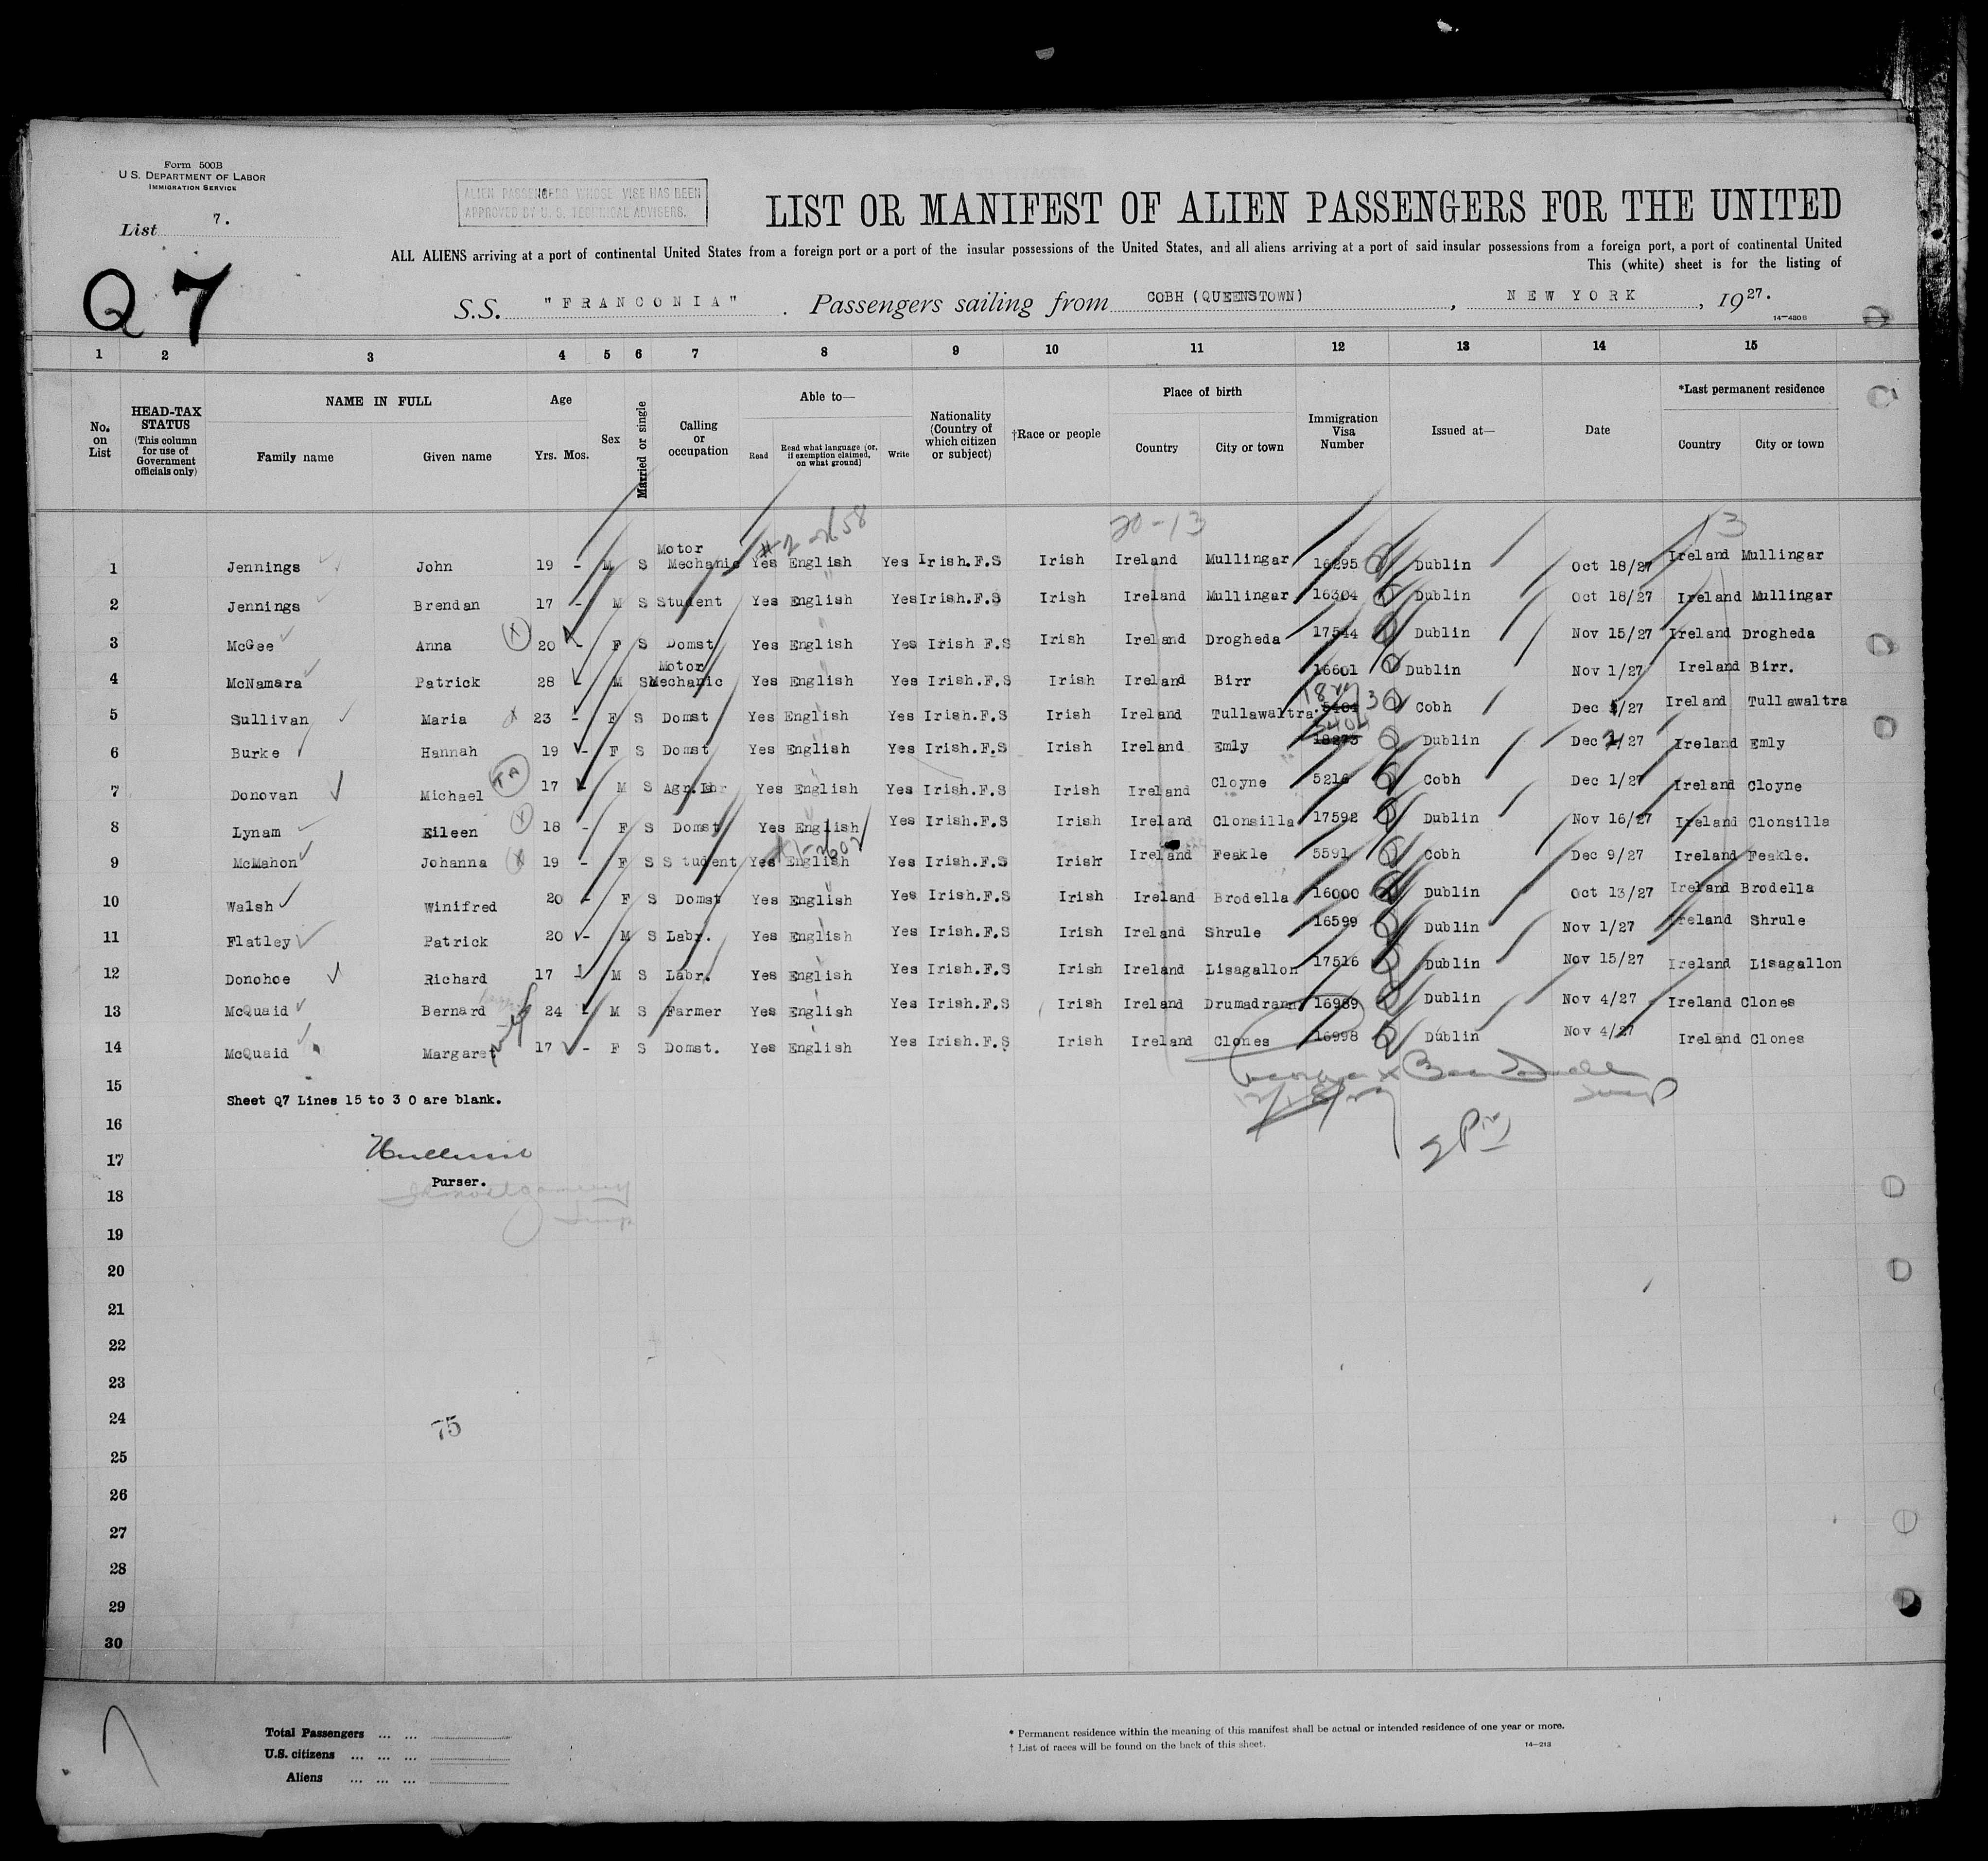 Form 500B
U.S. DEPARTMENT OF LABOR
IMMIGRATION SERVICE
List 7.
ALIEN PASSENGERS WHOSE VISE HAS BEEN
APPROVED BY U. S. TECHNICAL ADVISERS.
LIST OR MANIFEST OF ALIEN PASSENGERS FOR THE UNITED
ALL ALIENS arriving at a port of continental United States from a foreign port or a port of the insular possessions of the United States, and all aliens arriving at a port of said insular possessions from a foreign port, a port of continental United
This (white) sheet is for the listing of
Q 7
S.S. "FRANCONIA". Passengers sailing from COBH (QUEENSTOWN), NEW YORK, 1927.
14—480B
1 2 3 4 5 6 7 8 9 10 11 12 13 14 15
No. on List
HEAD-TAX STATUS (This column for use of Government officials only)
NAME IN FULL
Family name Given name
Age
Yrs. Mos.
Sex
Married or single
Calling or occupation
Able to—
Read
Read what language (or, if exemption claimed, on what ground)
Write
Nationality (Country of which citizen or subject)
†Race or people
Place of birth
Country City or town
Immigration Visa Number
Issued at—
Date
*Last permanent residence
Country City or town
20-13 13
1 Jennings John 19 - M S Motor Mechanic Yes English Yes Irish.F.S Irish Ireland Mullingar 16295 Dublin Oct 18/27 Ireland Mullingar
2 Jennings Brendan 17 - M S Student Yes English Yes Irish.F.S Irish Ireland Mullingar 16304 Dublin Oct 18/27 Ireland Mullingar
3 McGee Anna X 20 - F S Domst Yes English Yes Irish F.S Irish Ireland Drogheda 17544 Dublin Nov 15/27 Ireland Drogheda
4 McNamara Patrick 28 - M S Motor Mechanic Yes English Yes Irish.F.S Irish Ireland Birr 16601 Dublin Nov 1/27 Ireland Birr.
5 Sullivan Maria X 23 - F S Domst Yes English Yes Irish.F.S Irish Ireland Tullawaltra 5404 Cobh Dec /27 Ireland Tullawaltra
6 Burke Hannah 19 - F S Domst Yes English Yes Irish.F.S Irish Ireland Emly 18273 Dublin Dec /27 Ireland Emly
7 Donovan Michael TA 17 - M S Agr.Lbr Yes English Yes Irish.F.S Irish Ireland Cloyne 5216 Cobh Dec 1/27 Ireland Cloyne
8 Lynam Eileen X 18 - F S Domst Yes English Yes Irish.F.S Irish Ireland Clonsilla 17592 Dublin Nov 16/27 Ireland Clonsilla
9 McMahon Johanna X 19 - F S Student Yes English Yes Irish.F.S Irish Ireland Feakle 5591 Cobh Dec 9/27 Ireland Feakle.
10 Walsh Winifred 20 - F S Domst Yes English Yes Irish.F.S Irish Ireland Brodella 16000 Dublin Oct 13/27 Ireland Brodella
11 Flatley Patrick 20 - M S Labr. Yes English Yes Irish.F.S Irish Ireland Shrule 16599 Dublin Nov 1/27 Ireland Shrule
12 Donohoe Richard 17 - M S Labr. Yes English Yes Irish.F.S Irish Ireland Lisagallon 17516 Dublin Nov 15/27 Ireland Lisagallon
13 McQuaid Bernard 24 - M S Farmer Yes English Yes Irish.F.S Irish Ireland Drumadrann 16989 Dublin Nov 4/27 Ireland Clones
14 McQuaid Margaret 17 - F S Domst. Yes English Yes Irish.F.S Irish Ireland Clones 16998 Dublin Nov 4/27 Ireland Clones
15
Sheet Q7 Lines 15 to 30 are blank.
16
2 PM
17
Purser.
18
19
20
21
22
23
24
75
25
26
27
28
29
30
Total Passengers ... ...
U.S. citizens ... ... ...
Aliens ... ... ...
* Permanent residence within the meaning of this manifest shall be actual or intended residence of one year or more.
† List of races will be found on the back of this sheet.
14—213